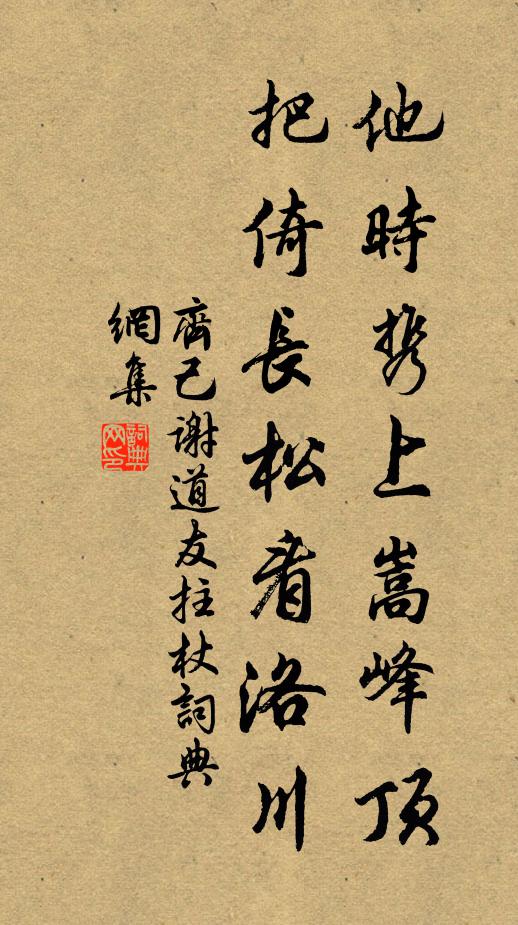 他時携上嵩峰頂
把倚長松看洛川
齊己謝道友拄杖詞典
網集
詞典網印